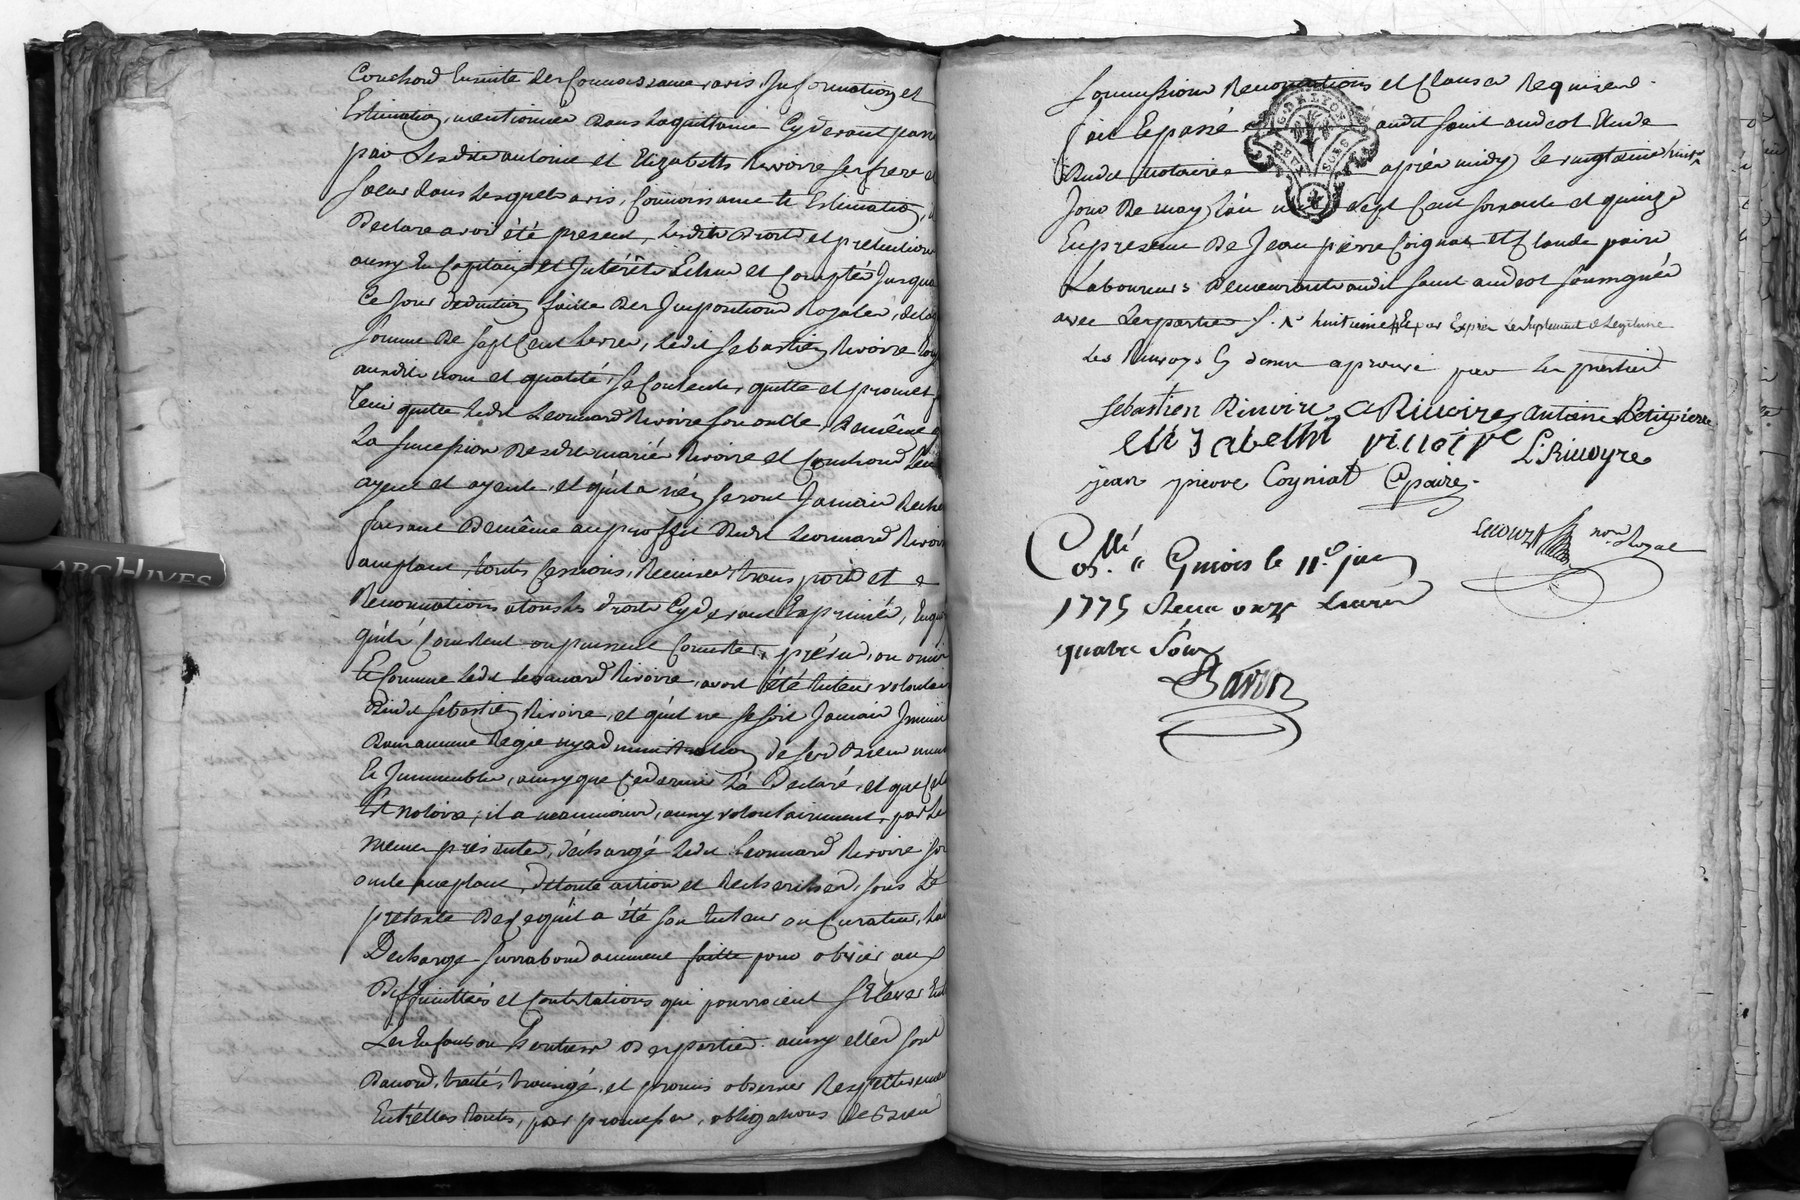 Couchoud Ensuite des Connoissance avis Information et
Estimation, mentionnés dans la quittance Cydevant passé
par Lesdits antoine et Elizabeth Rivoire ses frere et
Soeur dans lesquels avis, Connoissance et Estimation, il
Declare avoir été present, lesdits droits et pretentions
aussy En Capitaux et Intérêts Echus et Comptés Jusqua
Ce Jour deduction faitte des Impositions Royales, de la
somme de sept Cent livres, ledit Sebastien Rivoire Esd
auxdits nom et qualité, se Contente, quitte et promet
Tenir quitte ledit Leonnard Rivoire son oncle, de même
La succession desdits mariés Rivoire et Couchoud
ayent et ayente, et qu'il n'en seront Jamais Recherchés
faisant de même au proffit dudit Leonnard Rivoire
acceptant, toutes Cessions, Remises transports et
Renonciations a tous les droits Cydevant Exprimés, En quoy
qu'ils Consistent ou puissent Consister, prévus, ou omis
Et Comme ledit Leonnard Rivoire, avoit été tuteur volontaire
dudit Sebastien Rivoire, et qu'il ne se soit Jamais Immiscé
dans aucune Regie ny administration de ses Biens meubles
Et Immeubles, aussy que Ce dernier l'a Declaré, et que Cela
Est notoire; il a neanmoins, aussy volontairement, par Les
memes presentes, déchargé ledit Leonnard Rivoire son
oncle acceptant, de toute action et Recherches, sous le
pretexte de Ce qu'il a été son tuteur ou Curateur, la
Decharge surrabondamment faitte pour obvier aux
Difficultées et Contestations qui pourroient S'Elever Entre
Les Enfants ou heritiers des parties. aussy elles sont
D'accord, traités, transigé, et promis observer Respectivement
Entr'elles toutes, par promesses, obligations de Biens
Soumissions Renonciations et Clauses Requises.
fait Et passé audit saint andeol Etude
Dudit notaire apres midy le vingtsixie huit
Jour de may l'an mil sept Cent soixante et quinze
En presence de Jean pierre Coignat et Claude paire
Laboureurs demeurants audit saint andeol soussignés
avec les parties
Les Renvoys donne aprouvé par les parties
G. DE LYON
DEUX SOLS
sebastien Rivoire C Rivoire antoine Petitpierre
elizabeth rivoire L. Rivoyre
jean pierre Coyniat Cpaire
Collé a Givors le 11e juin
1775 Reçu onze Livres
quatre Sous
nore Royal
ARCHIVES